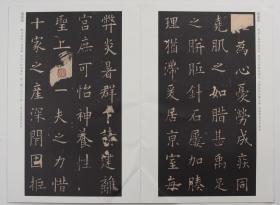 心憂勞成疾同
肌之如腊甚禹足
之胼胝針石屢加腠
理猶滯爰居京室每
弊炎暑群下請建離
宮庶可怡神養性
聖上一夫之力惜
十家之產深閉固拒